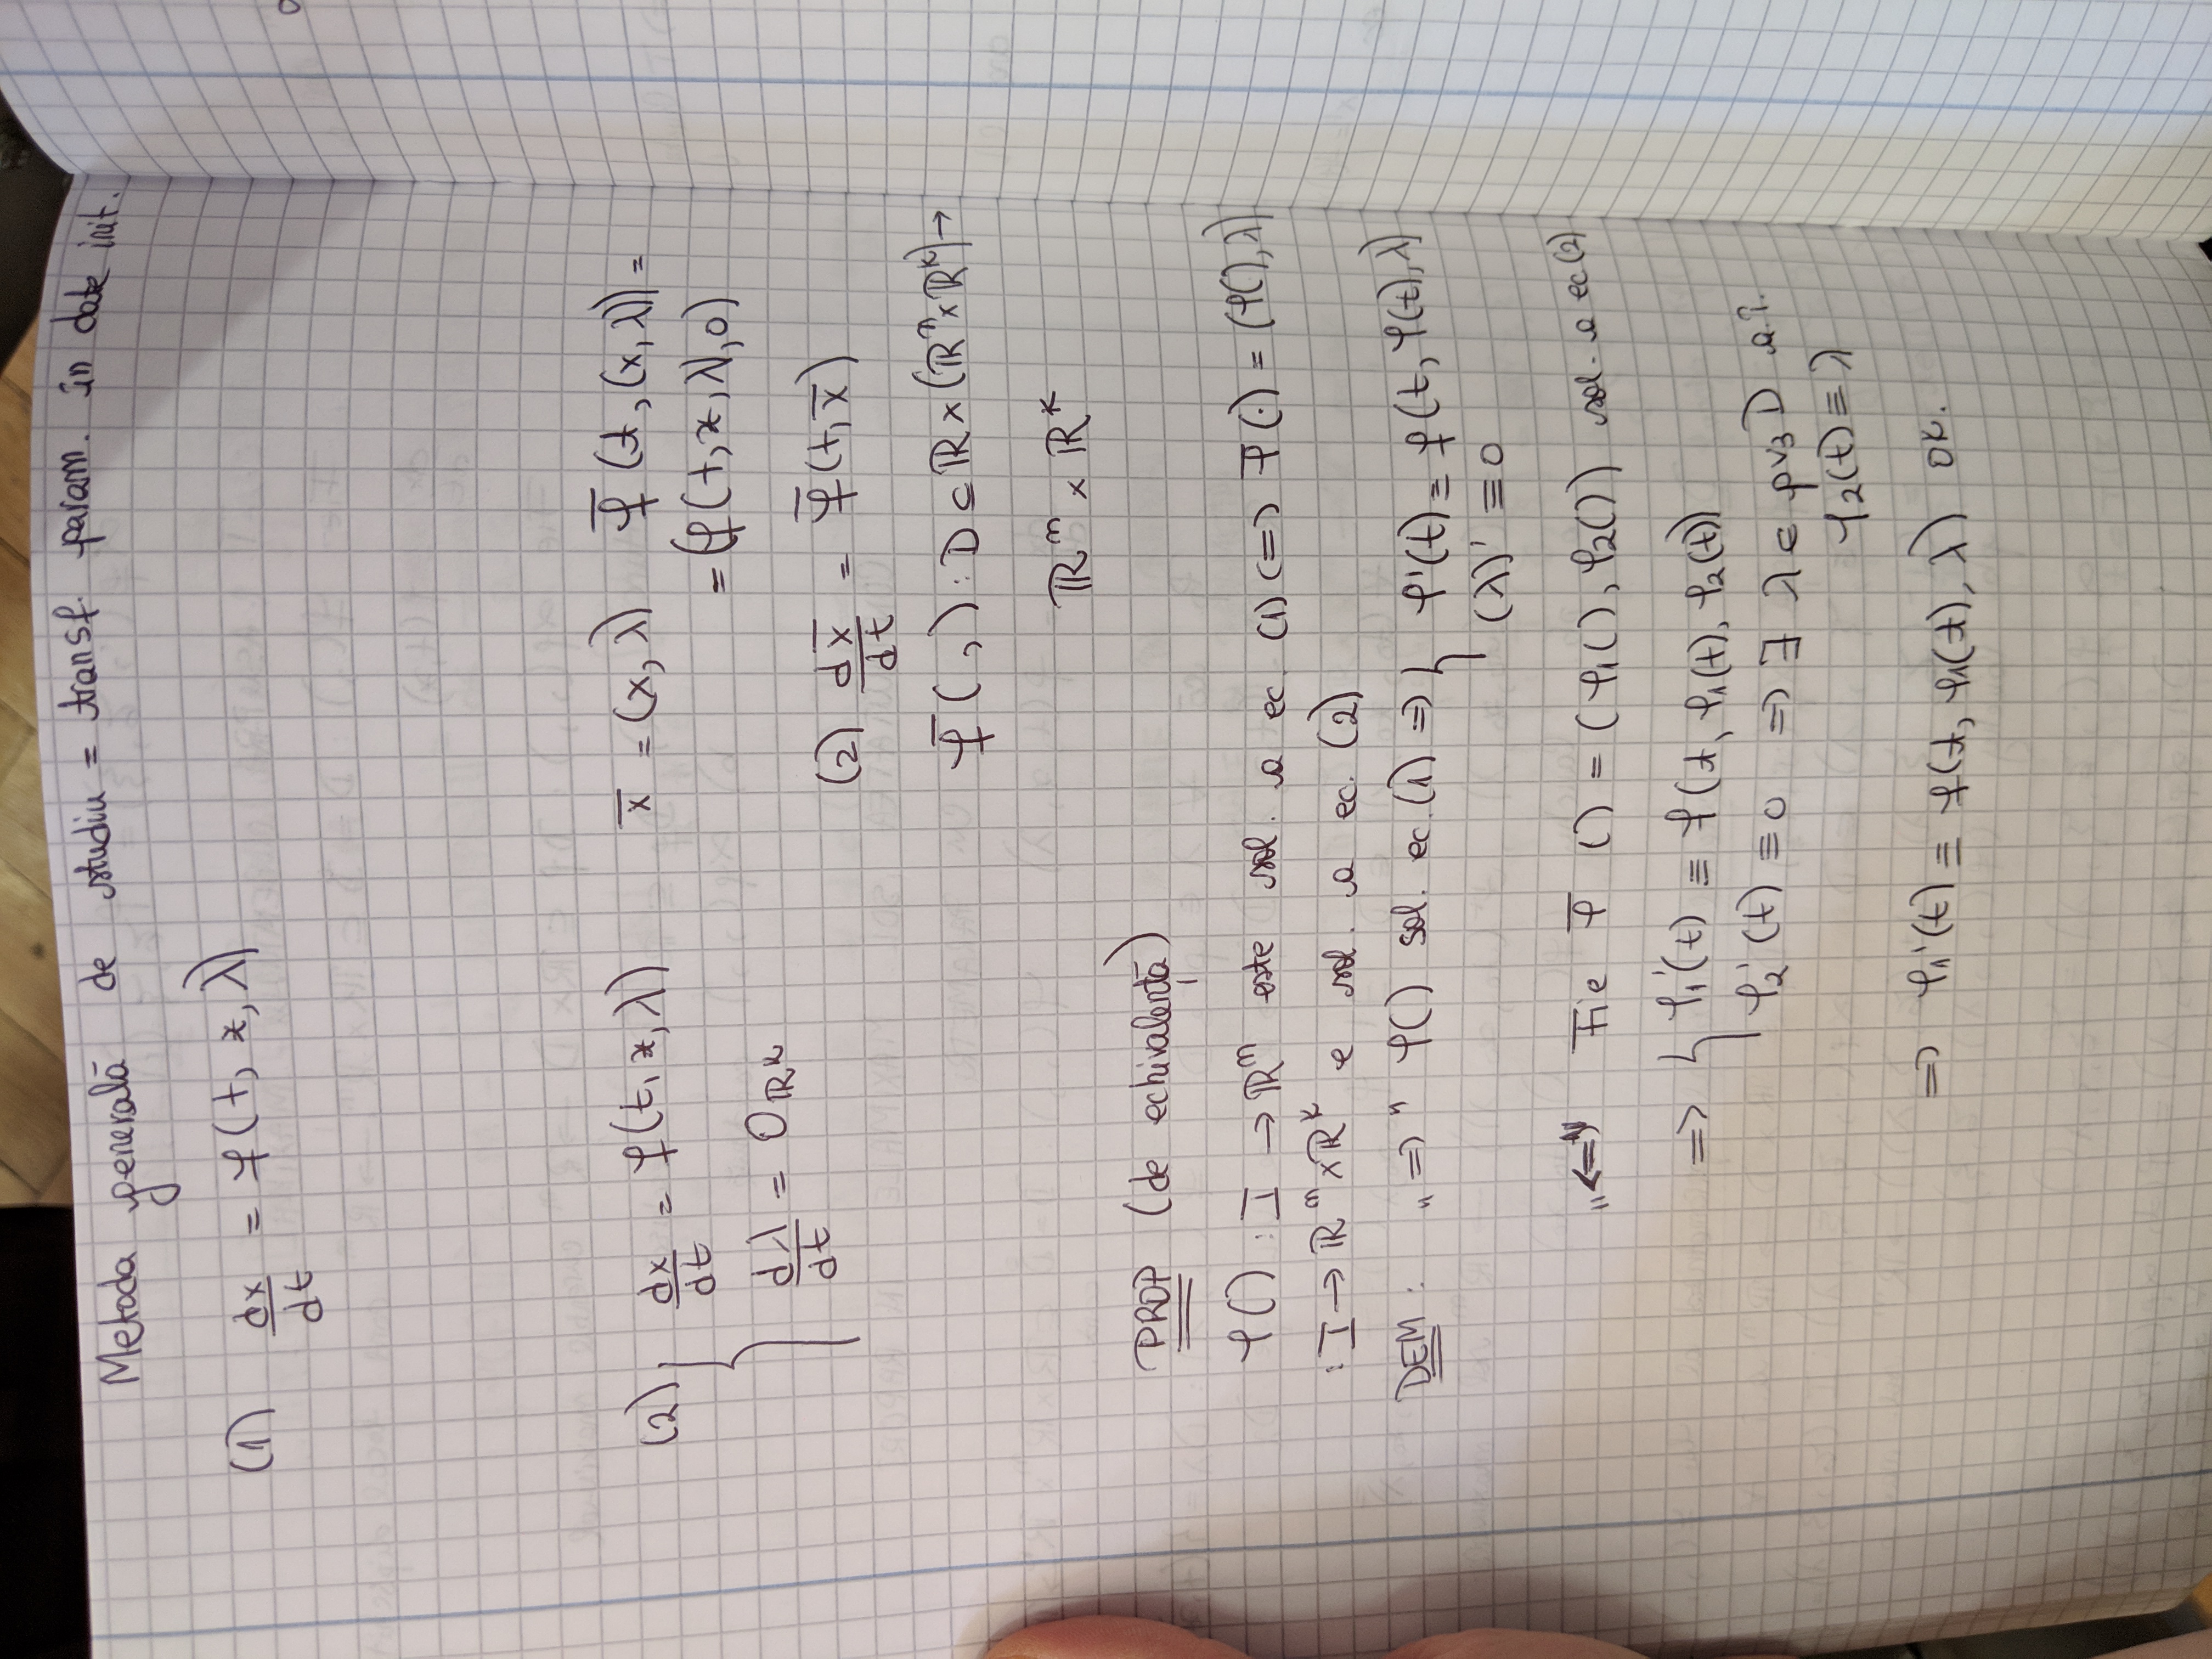 Metoda generală de studiu = transf. param. în date init.
(1) dx/dt = f(t, x, λ)
(2) { dx/dt = f(t, x, λ)
dλ/dt = O_ℝᵏ
x̄ = (x, λ) f̄(t, (x, λ)) =
= (f(t, x, λ), 0)
(2) dx̄/dt = f̄(t, x̄)
f̄( , ) : D ⊆ ℝ × (ℝⁿ × ℝᵏ) →
ℝⁿ × ℝᵏ
PROP (de echivalență)
φ() : I → ℝⁿ este sol. a ec. (1) <=> φ̄(·) = (φ(), λ)
: I → ℝⁿ × ℝᵏ e sol. a ec. (2)
DEM : „=>" φ() sol. ec. (1) => { φ'(t) ≡ f(t, φ(t), λ)
(λ)' ≡ 0
„<=" Fie φ̄ () = (φ₁(), φ₂()) sol. a ec (2)
=> { φ₁'(t) ≡ f(t, φ₁(t), φ₂(t))
φ₂'(t) ≡ 0 => ∃ λ ∈ pr₃ D a.î.
φ₂(t) ≡ λ
=> φ₁'(t) ≡ f(t, φ₁(t), λ) OK.